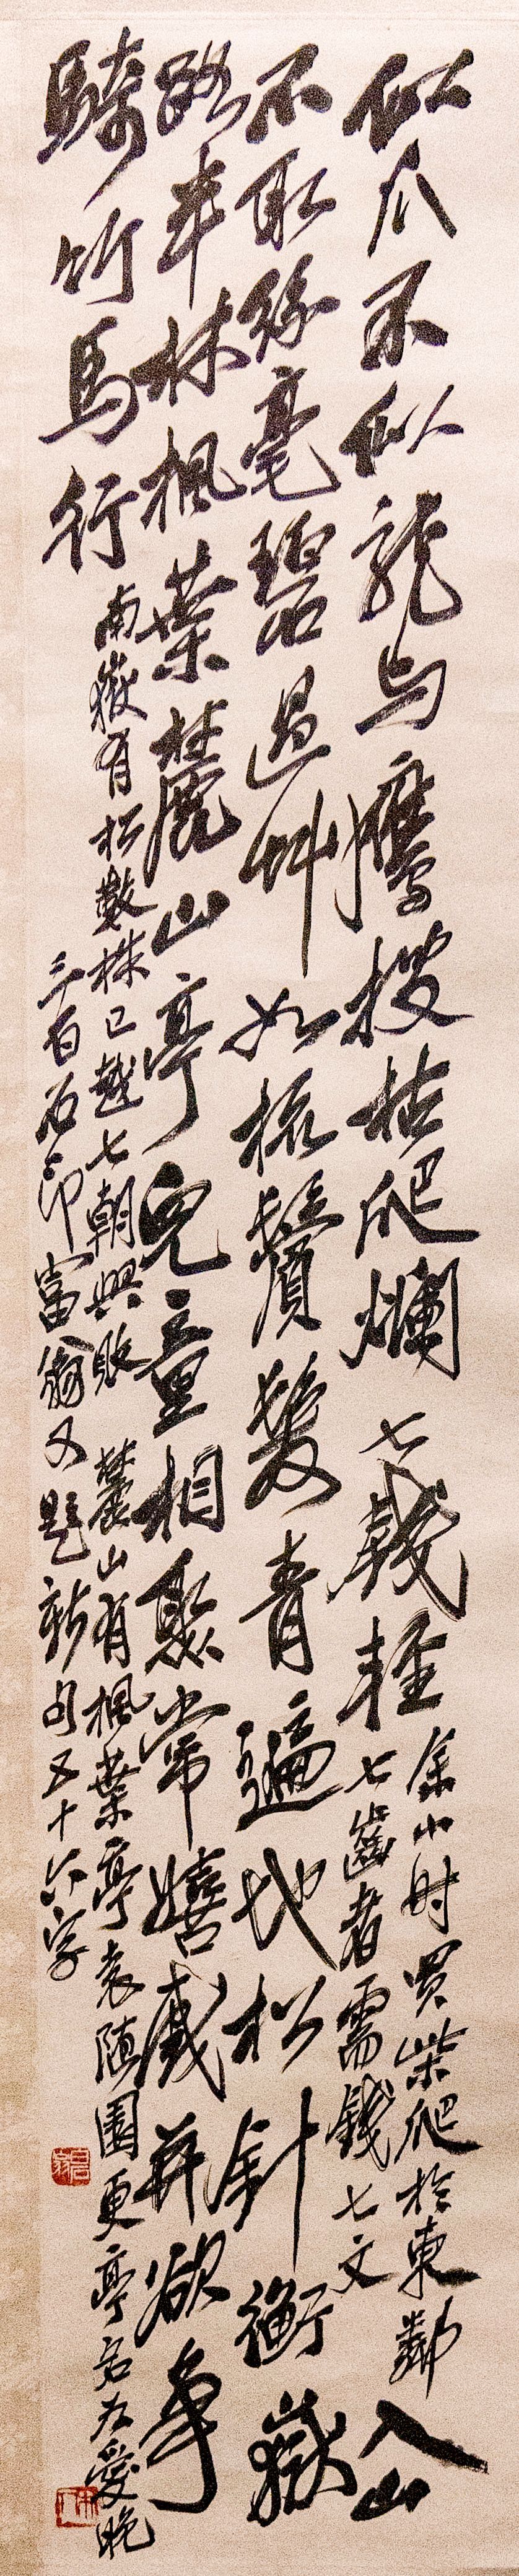 似爪不似龍与鷹搜枯爬爛七錢輕
余小時買柴爬於東鄰
七齒者需錢七文
入山
不取絲毫碧過艸如梳鬢髮青遍地松針衡嶽
路半林楓葉麓山亭兒童相聚常嬉戲并欲爭
騎竹馬行
南嶽有松數株已越七朝興敗麓山有楓葉亭袁隨園更亭名為愛晚
三百石印富翁又題新句五十六字